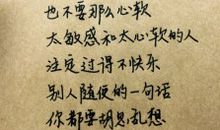 也不要那么心软
太敏感和太心软的人
注定过得不快乐
别人随便的一句话
你都要胡思乱想